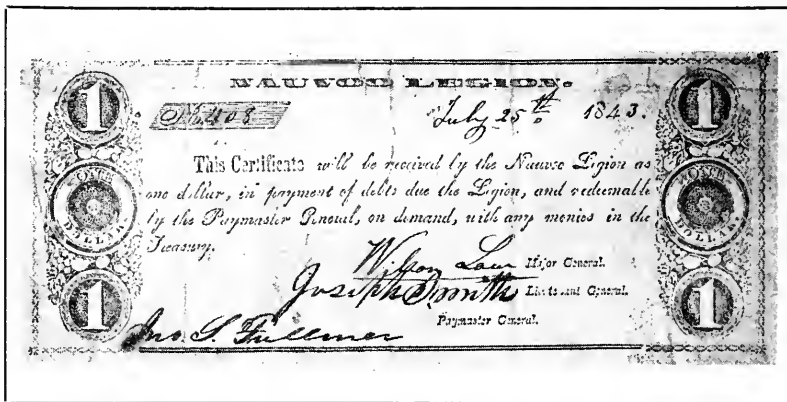 NAUVOO LEGION.
1
No. 408
July 25th 1843.
1
This Certificate will be received by the Nauvoo Legion as
one dollar, in payment of debts due the Legion, and redeemable
by the Paymaster General, on demand, with any monies in the
Treasury.
ONE
DOLLAR
ONE
DOLLAR
Wilson Law Major General.
Joseph Smith Lieutenant General.
Paymaster General.
Jno. S. Fullmer
1
1